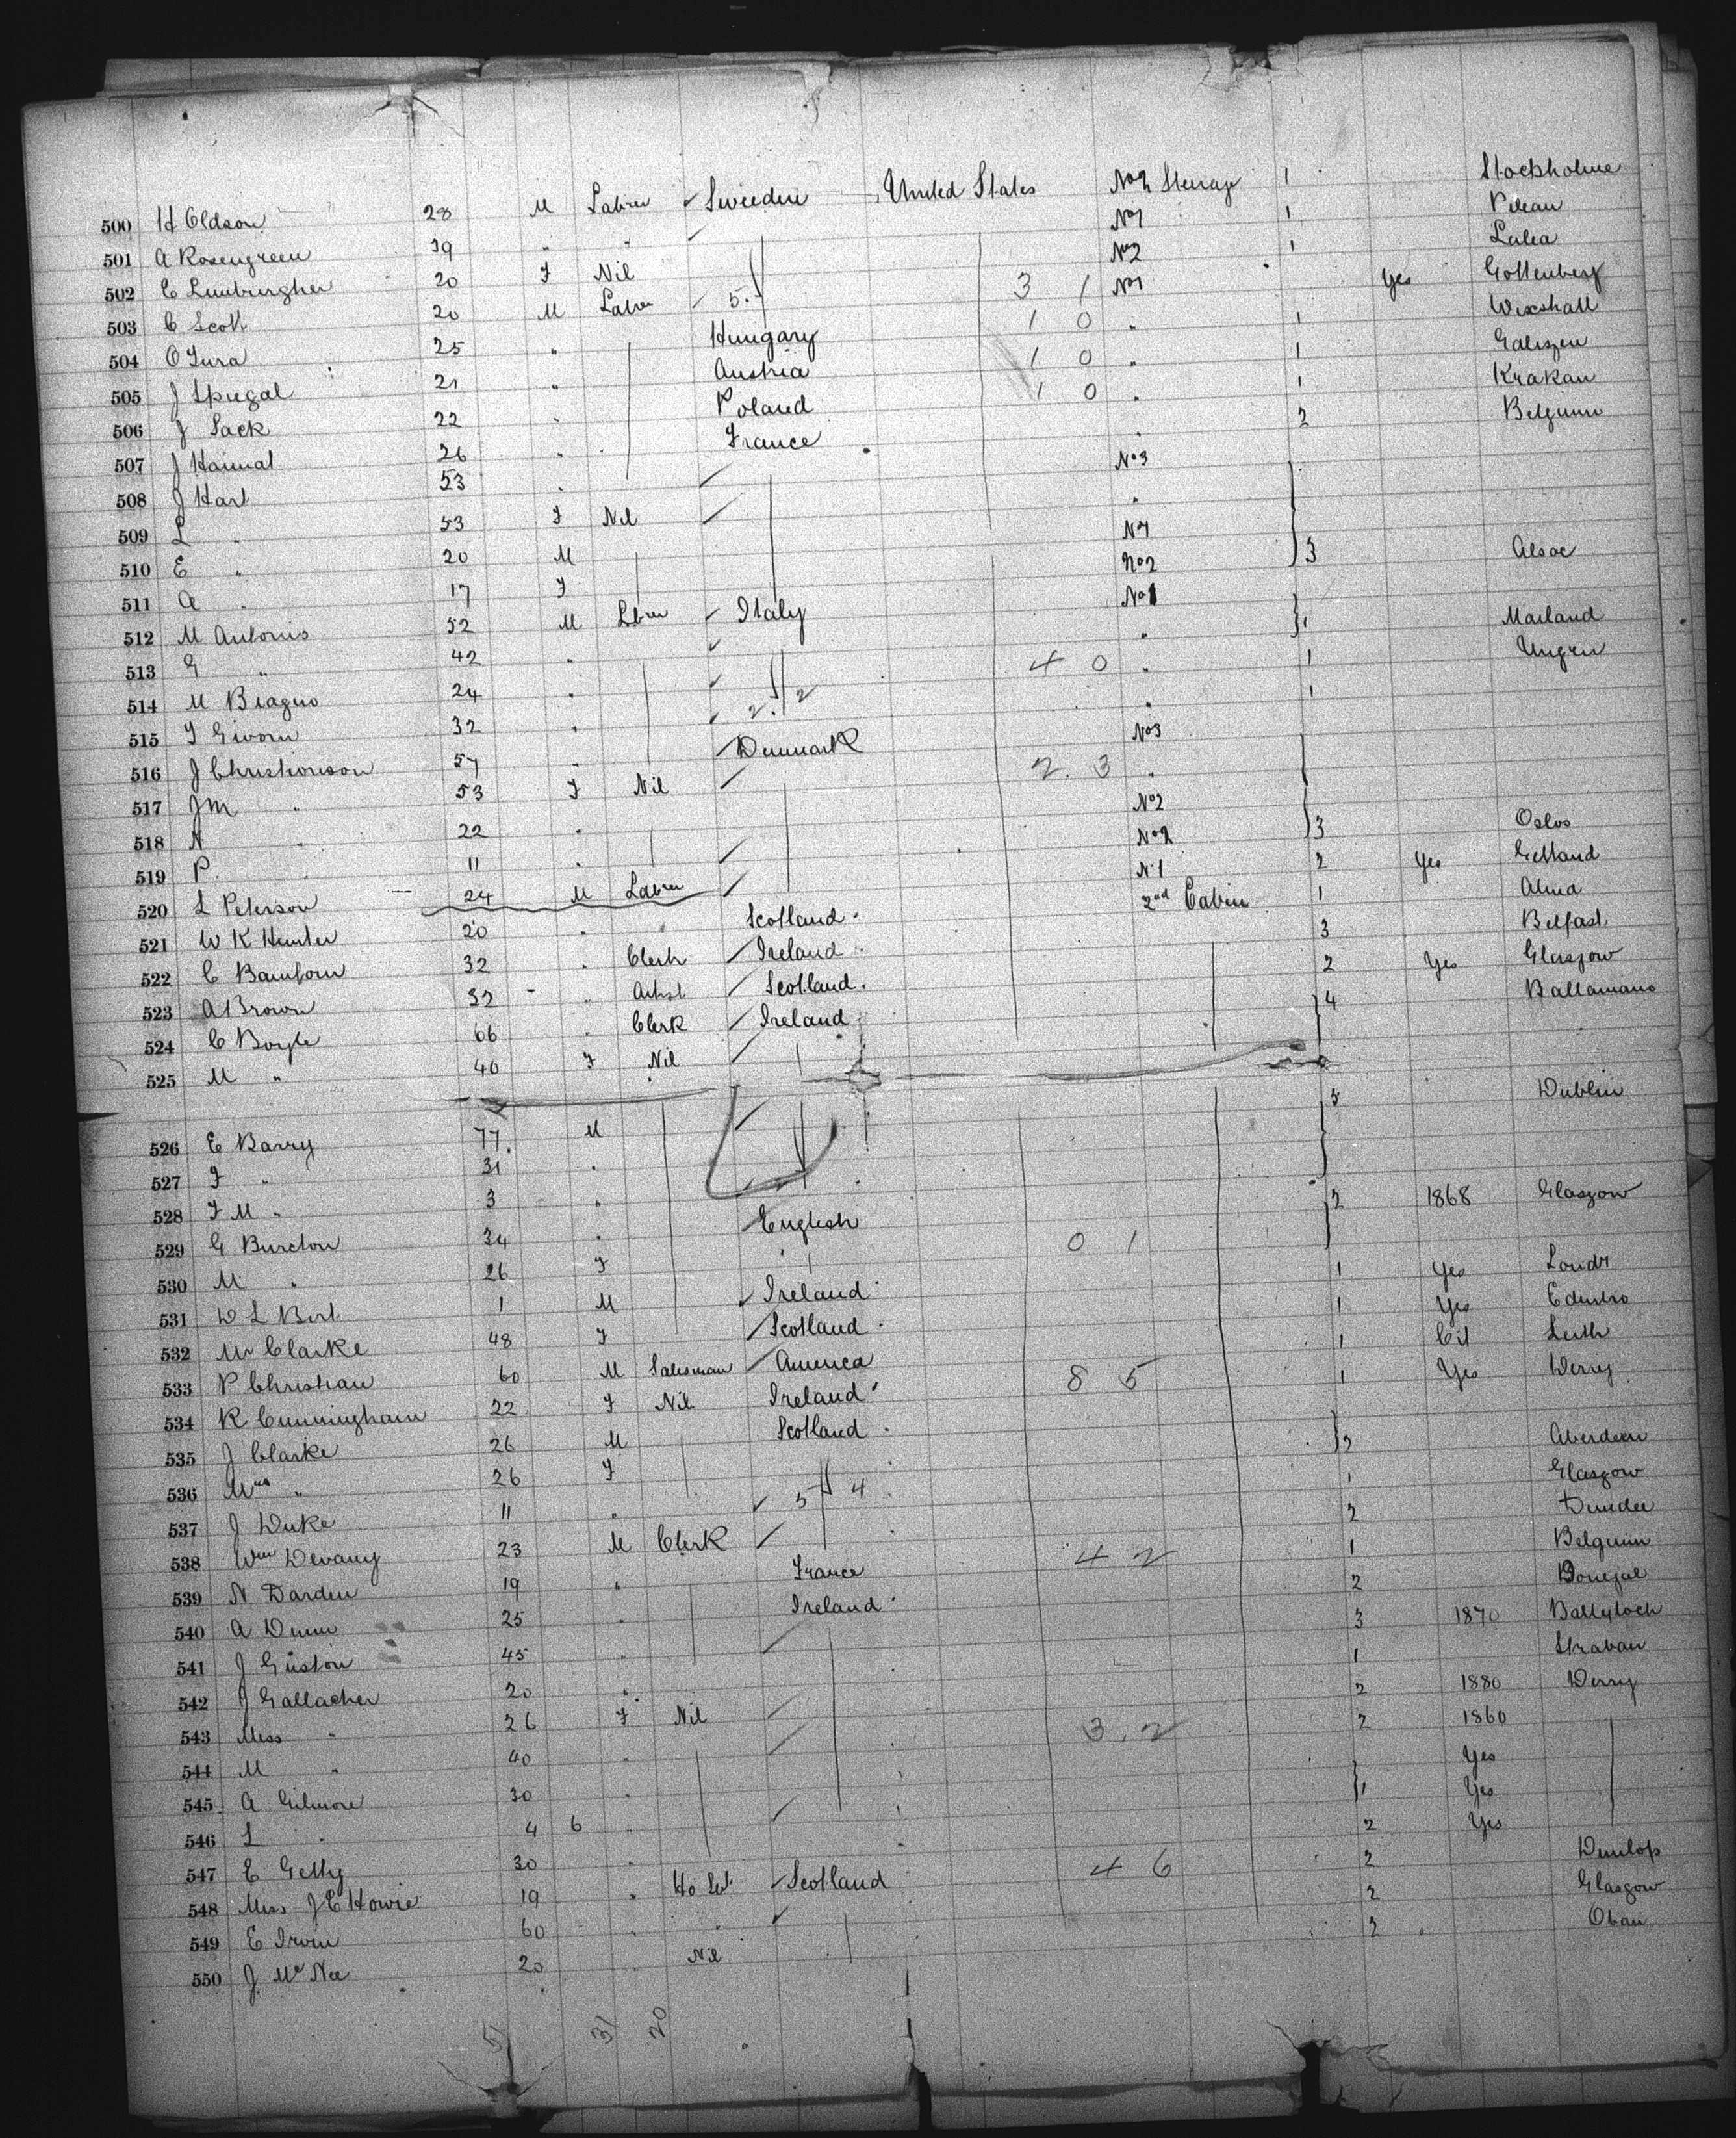 500 H Oldson 28 M Labrer ✓ Sweden United States No 2 Steerage 1 Stockholme
501 A Rosengreen 19 " " No 1 1 Pitean
502 C 20 F Nil No 2 1 Lulea
503 C Scott 20 M Labr 5. 3 1 No 1 Yes Gottenberg
504 O Tura 25 " Hungary 1 0 " 1
505 J Spiegal 21 " Austria 1 0 " 1 Galiszen
506 J Sack 22 " Poland 1 0 " 1 Krakau
507 J Hannal 26 " France " 2 Belgium
508 J Hart 53 " No 3
509 L " 53 F Nil "
510 E " 20 M No 1
511 A " 17 F No 2 3 Alsac
512 M Antonis 52 M Lbrer ✓ Italy No 1
513 G " 42 " ✓ " 1 Mailand
514 M Biagno 24 " ✓ 4 0 " 1 Ungrn
515 T Givorn 32 " ✓ 2. 2 " 1
516 J Christionson 57 " Denmark No 3
517 J M " 53 F Nil 2. 3 "
518 N " 22 " No 2
519 P. " 11 " No 2 3 Oslos
520 L Peterson 24 M Labrer No 1 2 Yes Gelland
521 W K Hunter 20 " Scotland 2nd Cabin 1 Alma
522 C Bamforn 32 " Clerk Ireland 3 Belfast
523 A Brown 32 " Artist Scotland 2 Yes Glasgow
524 C Boyle 66 " Clerk Ireland 4
525 M " 40 F Nil
526 E Barry 77 M 3 Dublin
527 F " 31 "
528 F M " 3 "
529 G Burelon 34 " English 2 1868 Glasgow
530 M " 26 F 0 1
531 D L Bert 1 M ✓ Ireland 1 Yes
532 Mr Clarke 48 F Scotland 1 Yes
533 P Christian 60 M Salesman America 1 Cit Leith
534 R Cunningham 22 F Nil Ireland 8 5 1 Yes Derry
535 J Clarke 26 M Scotland
536 Mrs " 26 F 2 Aberdeen
537 J Duke 11 " ✓ 5 4 1 Glasgow
538 Wm Devany 23 M Clerk 2 Dundee
539 N. Darden 19 " France 4 2 1 Belguim
540 A Dunn 25 " Ireland 2 Donegal
541 J Guston 45 " 3 1870
542 J Gallacher 20 " 1 Straban
543 Miss " 26 F Nil 2 1880 Derry
544 M " 40 " 3. 2 2 1860
545 A Gilmore 30 " Yes
546 L " 4 6 " 1 Yes
547 E Getty 30 " 2 Yes
548 Miss J E Howie 19 " Scotland 4 6 2 Dunlop
549 E Irvin 60 " " ✓ 2 Glasgow
550 J McNee 20 " Nil 2 Oban
51 31 20